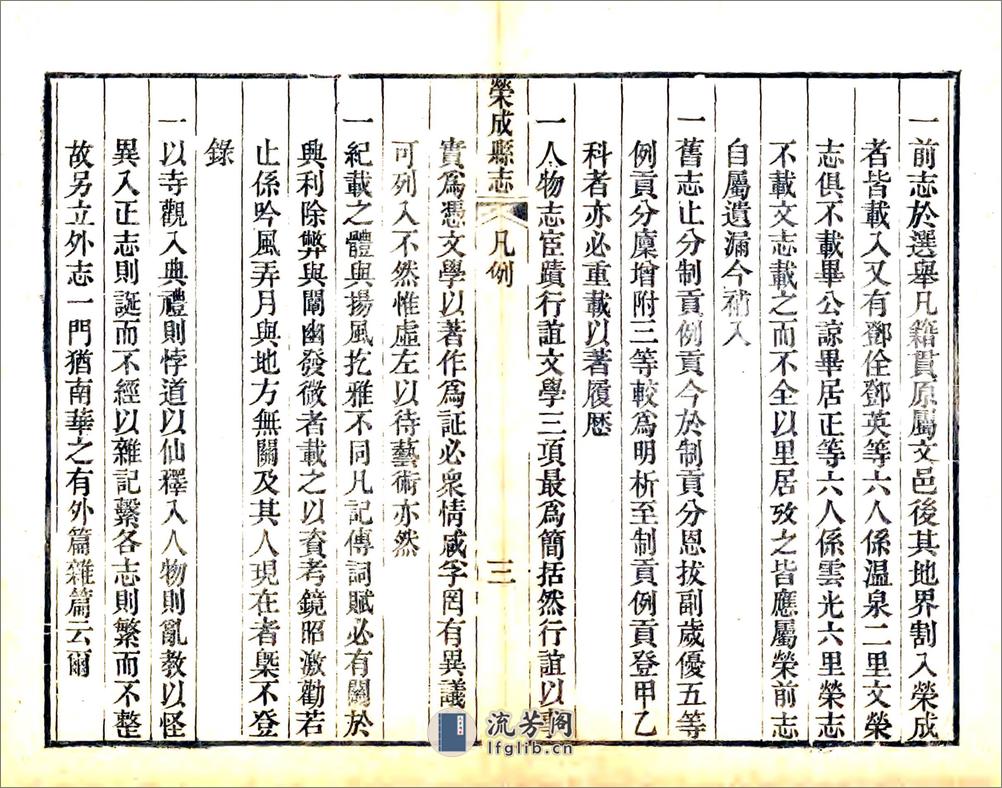 一前志於選舉凡籍貫原屬文邑後其地界割入榮成
者皆載入又有鄧佺鄧英等六人係温泉二里文榮
志俱不載畢公諒畢居正等六人係雲光六里榮志
不載文志載之而不全以里居攷之皆應屬榮前志
自屬遺漏今補入
一舊志止分制貢例貢今於制貢分恩拔副歲優五等
例貢分廩增附三等較爲明析至制貢例貢登甲乙
科者亦必重載以著履歷
一人物志宦蹟行誼文學三項最爲簡括然行誼以事
榮成縣志 凡例 三
實爲憑文學以著作爲証必衆情咸孚罔有異議
可列入不然惟虛左以待藝術亦然
一紀載之體與揚風扢雅不同凡記傳詞賦必有關於
興利除弊與闡幽發微者載之以資考鏡昭激勸若
止係吟風弄月與地方無關及其人現在者槩不登
錄
一以寺觀入典禮則悖道以仙釋入人物則亂教以怪
異入正志則誕而不經以雜記繫各志則繁而不整
故另立外志一門猶南華之有外篇雜篇云爾
流芳阁
lfglib.cn